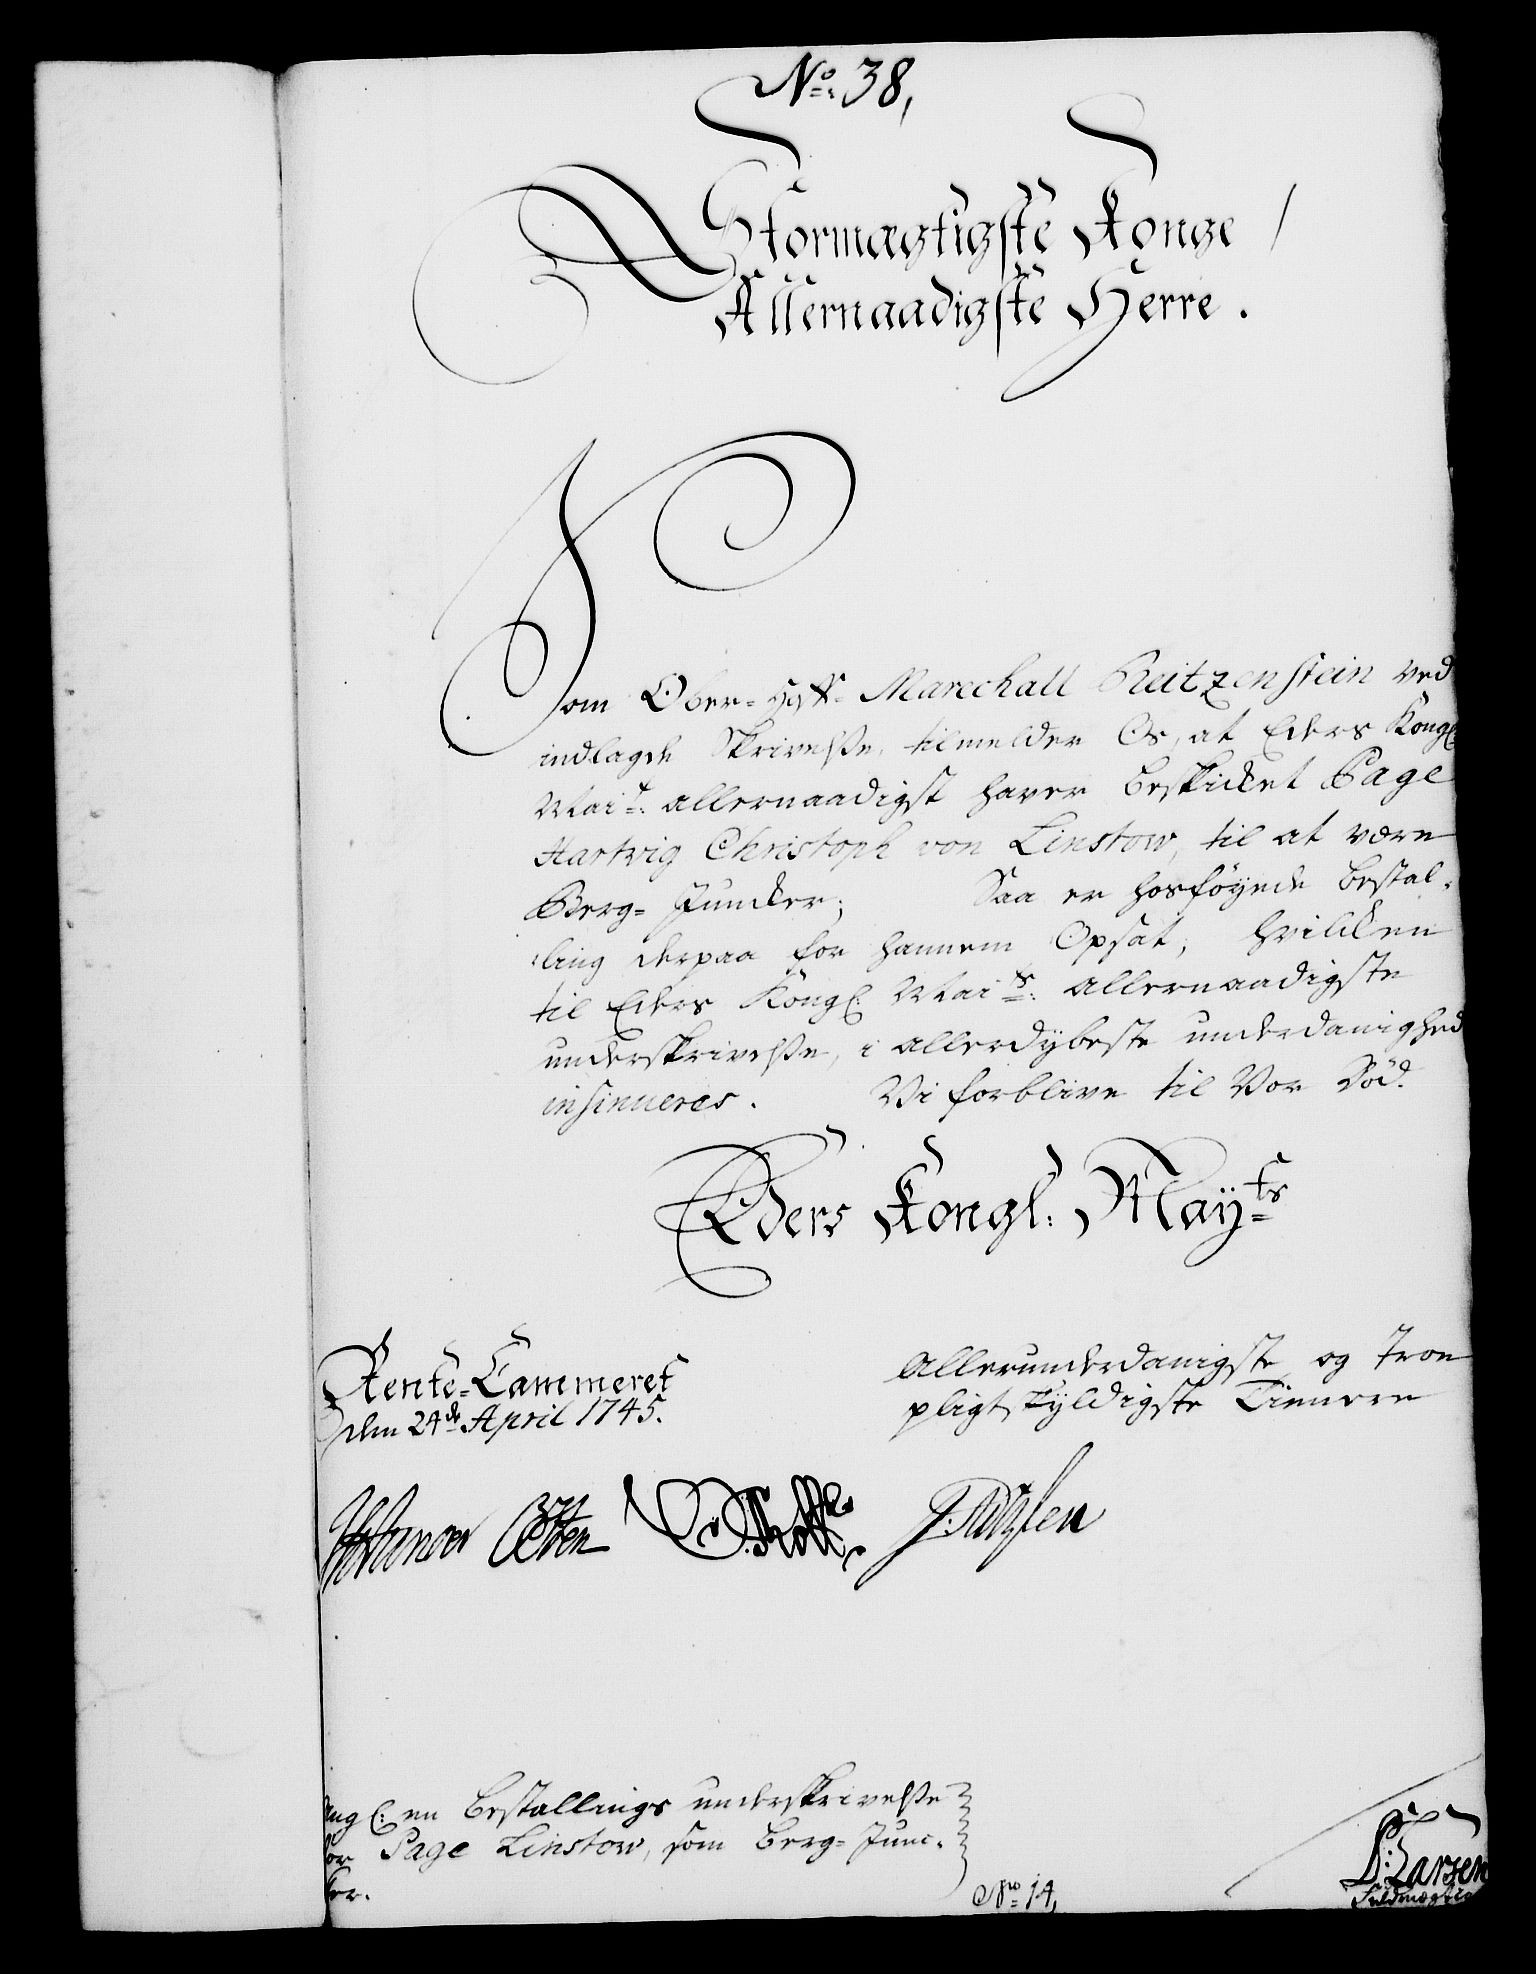 No: 38,
Stormægtigste Konge /
Allernaadigste Herre.
Som Ober-Hoff-Marechall Reitzenstein ved
indlagde Skrivelsse, tilmelder Os, at Eders Kongl:
Mait: allernaadigst haver beskikket Page
Hartvig Christoph von Linstow, til at være
Berg-Juncker; Saa er hosføyede bestal-
ling derpaa for hannem Opsat, hvilcken
til Eders Kongl: Maits: allernaadigste
underskrivelsse, i allerdybeste underdanighed
insinueres. Vi forblive til Vor Död.
Eders Kongl: Mayts
Rente-Cammeret
den 24de April 1745.
Allerunderdanigste og Troe
pligtskyldigste Tienere
ang l: en Bestallings underskrivelsse
for Page Linstow, som Berg-Junc-
ker.
No 14,
L: Larsen
Fuldmægtig